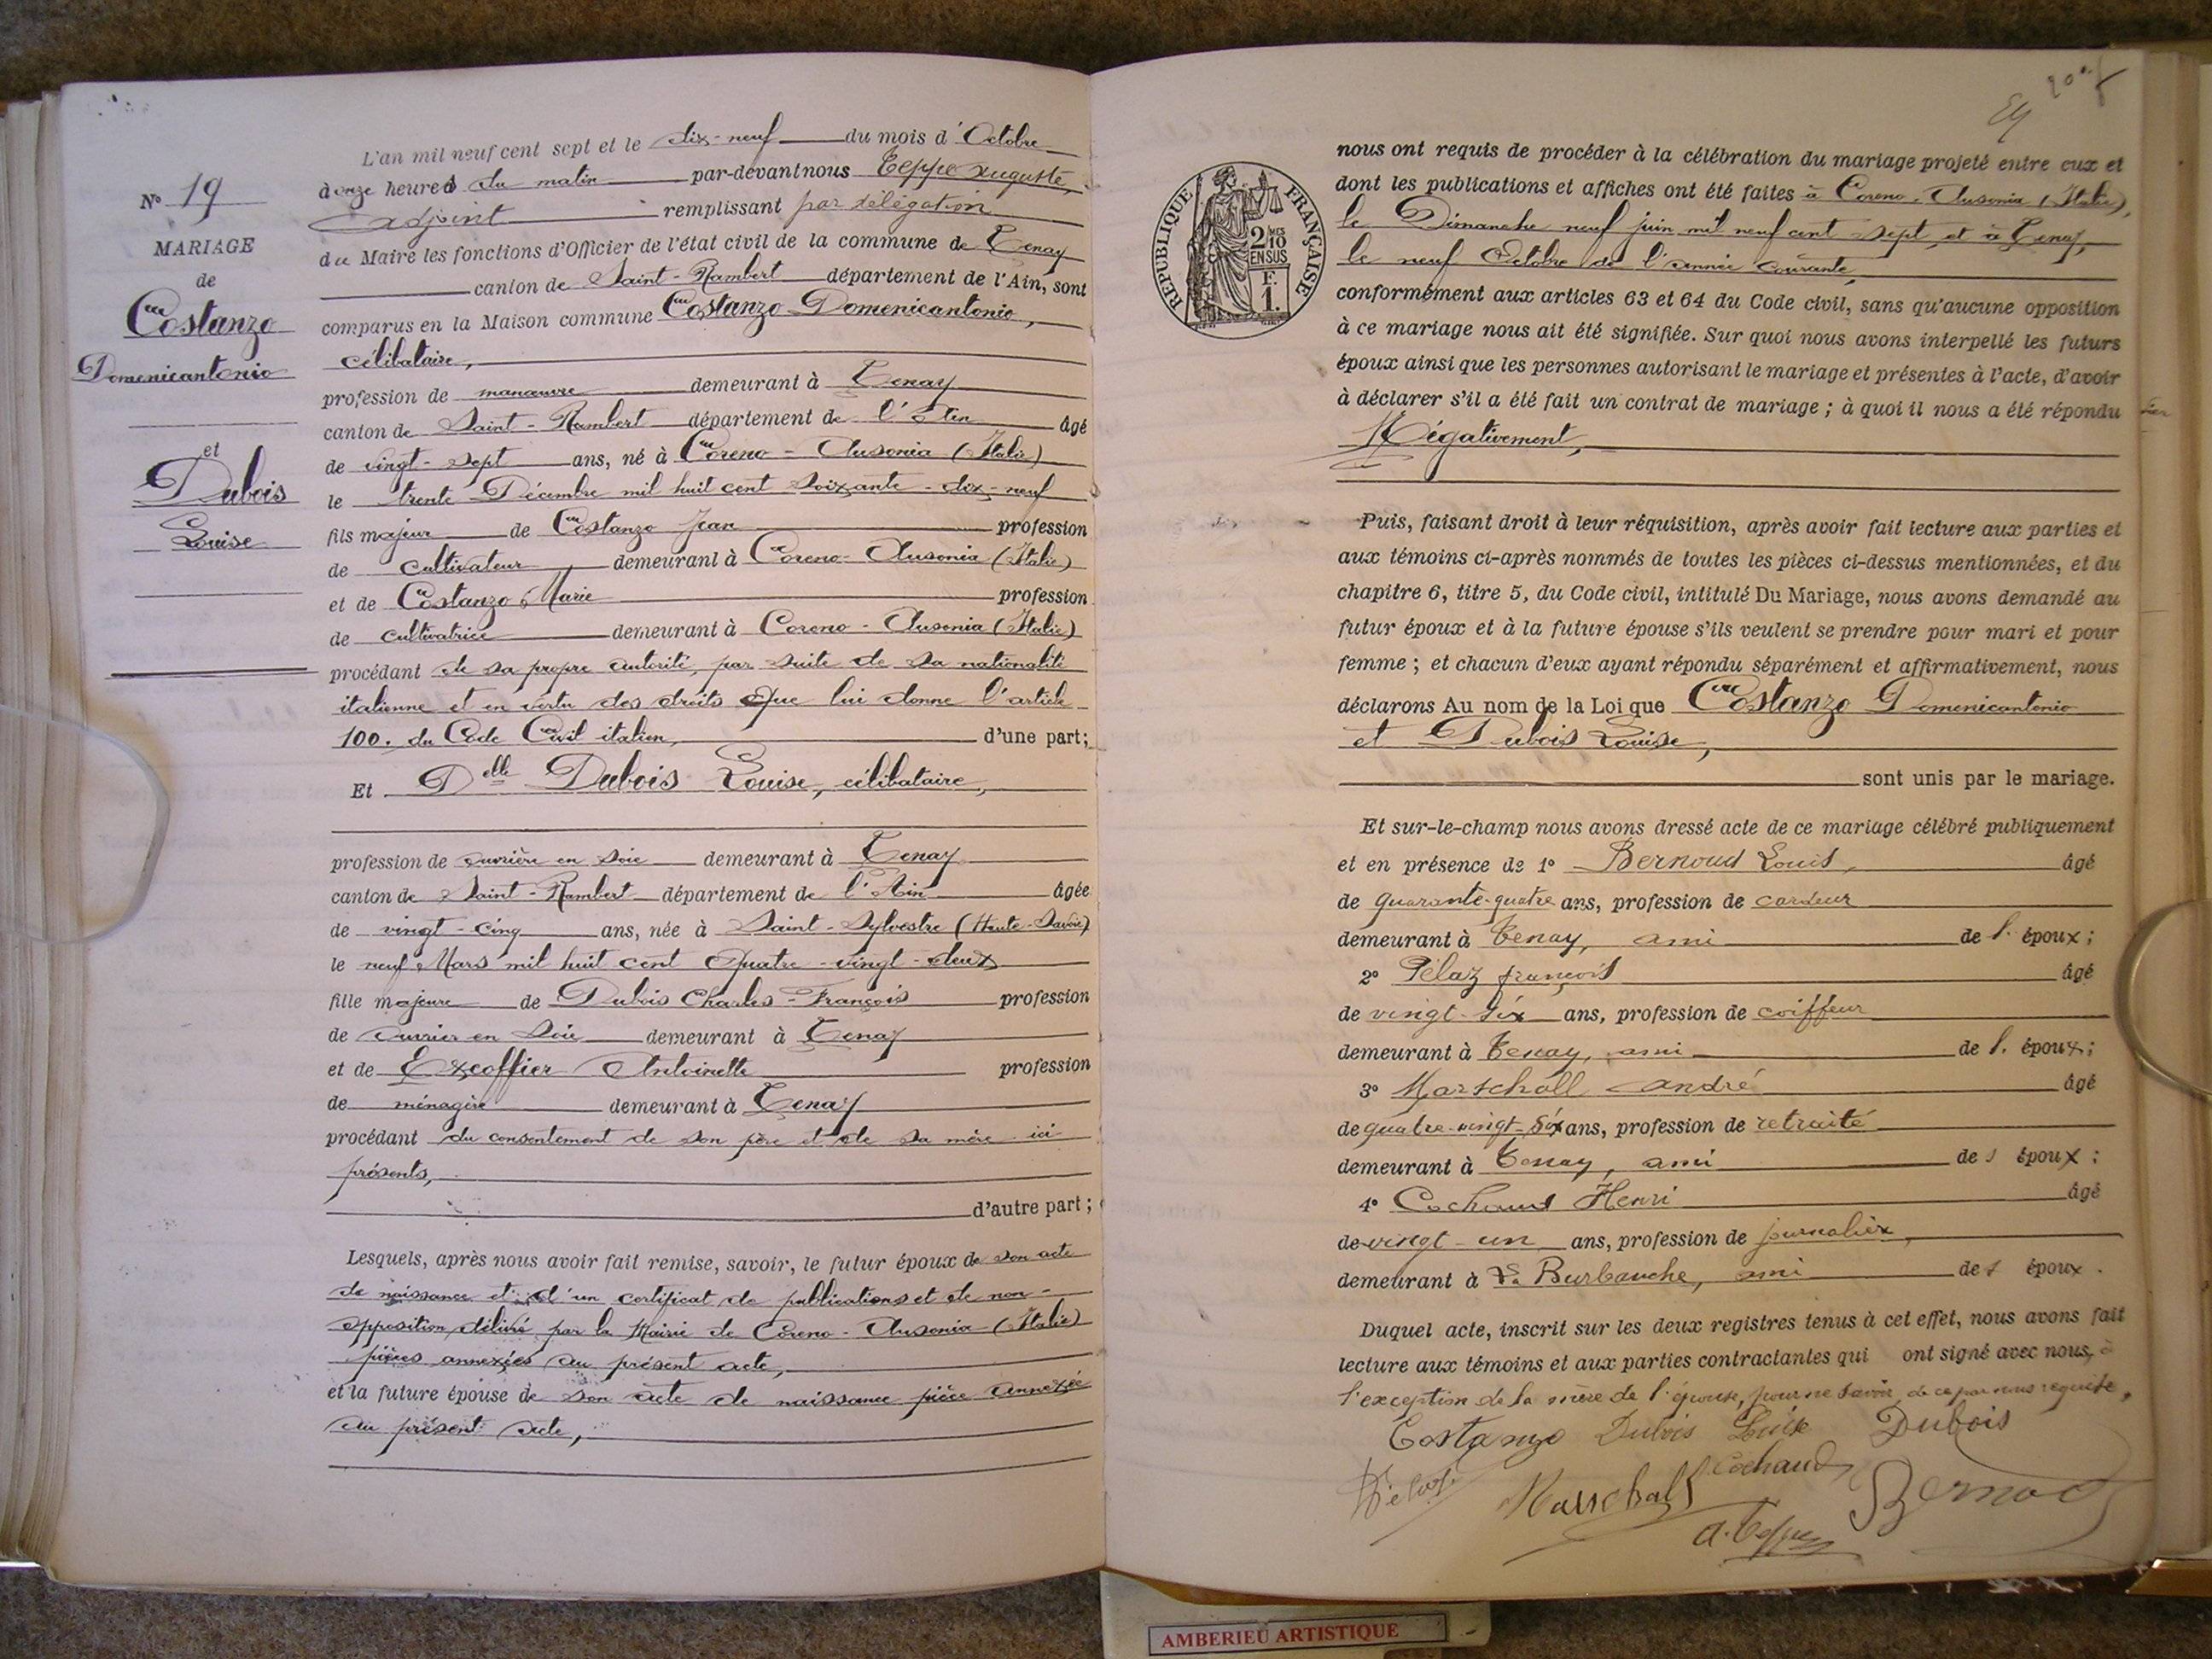 L'an mil neuf cent sept et le dix-neuf du mois d'Octobre
à onze heures du matin par-devant nous Teppe Auguste,
Adjoint remplissant par délégation
du Maire les fonctions d'Officier de l'état civil de la commune de Tenay
canton de Saint-Rambert département de l'Ain, sont
comparus en la Maison commune Costanzo Domenicantonio,
célibataire,
profession de manœuvre demeurant à Tenay
canton de Saint-Rambert département de l'Ain âgé
de vingt-sept ans, né à Coreno-Ausonia (Italie)
le trente Décembre mil huit cent soixante-dix-neuf
fils majeur de Costanzo Jean profession
de cultivateur, demeurant à Coreno-Ausonia (Italie)
et de Costanzo Marie profession
de cultivatrice demeurant à Coreno-Ausonia (Italie)
procédant de sa propre autorité, par suite de sa nationalité
italienne et en vertu des droits que lui donne l'article
100. du Code Civil italien, d'une part;
Et Delle Dubois Louise, célibataire,
profession de ouvrière en soie demeurant à Tenay
canton de Saint-Rambert département de l'Ain âgée
de vingt-cinq ans, née à Saint-Sylvestre (Haute-Savoie)
le neuf Mars mil huit cent quatre-vingt-deux
fille majeure de Dubois Charles-François profession
de ouvrier en soie demeurant à Tenay
et de Excoffier Antoinette profession
de ménagère demeurant à Tenay
procédant du consentement de son père et de sa mère ici
présents,
d'autre part;
Lesquels, après nous avoir fait remise, savoir, le futur époux de son acte
de naissance et d'un certificat de publications et de non-
opposition délivré par la Mairie de Coreno-Ausonia (Italie)
pièces annexées au présent acte,
et la future épouse de son acte de naissance pièce annexée
au présent acte,
N° 19
MARIAGE
de
Costanzo
Domenicantonio
et
Dubois
Louise
REPUBLIQUE FRANÇAISE
2 MES
10
EN SUS
F.
1.
nous ont requis de procéder à la célébration du mariage projeté entre eux et
dont les publications et affiches ont été faites à Coreno-Ausonia (Italie),
le Dimanche neuf juin mil neuf cent sept et à Tenay,
le neuf Octobre de l'année courante,
conformément aux articles 63 et 64 du Code civil, sans qu'aucune opposition
à ce mariage nous ait été signifiée. Sur quoi nous avons interpellé les futurs
époux ainsi que les personnes autorisant le mariage et présentes à l'acte, d'avoir
à déclarer s'il a été fait un contrat de mariage; à quoi il nous a été répondu
Négativement,
Puis, faisant droit à leur réquisition, après avoir fait lecture aux parties et
aux témoins ci-après nommés de toutes les pièces ci-dessus mentionnées, et du
chapitre 6, titre 5, du Code civil, intitulé Du Mariage, nous avons demandé au
futur époux et à la future épouse s'ils veulent se prendre pour mari et pour
femme; et chacun d'eux ayant répondu séparément et affirmativement, nous
déclarons Au nom de la Loi que Costanzo Domenicantonio
et Dubois Louise,
sont unis par le mariage.
Et sur-le-champ nous avons dressé acte de ce mariage célébré publiquement
et en présence de 1° Bernoud Louis, âgé
de quarante-quatre ans, profession de cardeur
demeurant à Tenay, ami de l' époux;
2° Pélaz françois âgé
de vingt-six ans, profession de coiffeur
demeurant à Tenay, ami de l' époux;
3° Marschall André âgé
de quatre-vingt-six ans, profession de retraité
demeurant à Tenay, ami des époux;
4° Cochaud Henri âgé
de vingt-un ans, profession de journalier,
demeurant à La Burbanche, ami des époux.
Duquel acte, inscrit sur les deux registres tenus à cet effet, nous avons fait
lecture aux témoins et aux parties contractantes qui ont signé avec nous, à
l'exception de la mère de l'épouse, pour ne savoir, de ce par nous requise,
Costanzo Dubois Louise Dubois
Pélaz Marschall Cochaud Bernoud
A. Teppe
AMBERIEU ARTISTIQUE